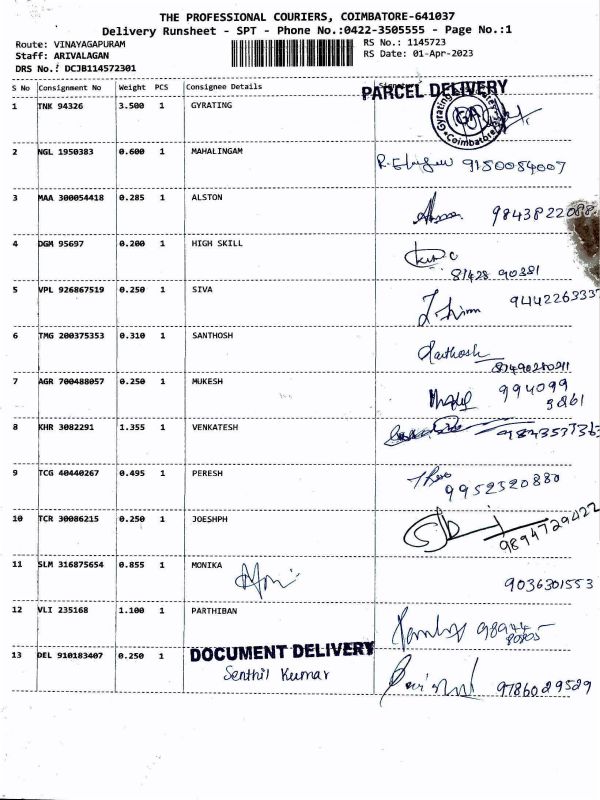 THE PROFESSIONAL COURIERS, COIMBATORE-641037
Delivery Runsheet - SPT - Phone No.:0422-3505555 - Page No.:1
Route: VINAYAGAPURAM
Staff: ARIVALAGAN
DRS No.: DCJB114572301
RS No.: 1145723
RS Date: 01-Apr-2023
S No Consignment No Weight PCS Consignee Details
PARCEL DELIVERY
1 TNK 94326 3.500 1 GYRATING
Gyrating
GA
Coimbatore
2 NGL 1950383 0.600 1 MAHALINGAM
9150054007
3 MAA 300054418 0.285 1 ALSTON
9843822088
4 DGM 95697 0.200 1 HIGH SKILL
81428 90381
5 VPL 926867519 0.250 1 SIVA
9442263337
6 TMG 200375353 0.310 1 SANTHOSH
7 AGR 700488057 0.250 1 MUKESH
994099
8 KHR 3082291 1.355 1 VENKATESH
9 TCG 40440267 0.495 1 PERESH
9952320880
10 TCR 30086215 0.250 1 JOESHPH
9894729422
11 SLM 316875654 0.855 1 MONIKA
9036301553
12 VLI 235168 1.100 1 PARTHIBAN
13 DEL 910183407 0.250 1 DOCUMENT DELIVERY
Senthil Kumar
9786029529